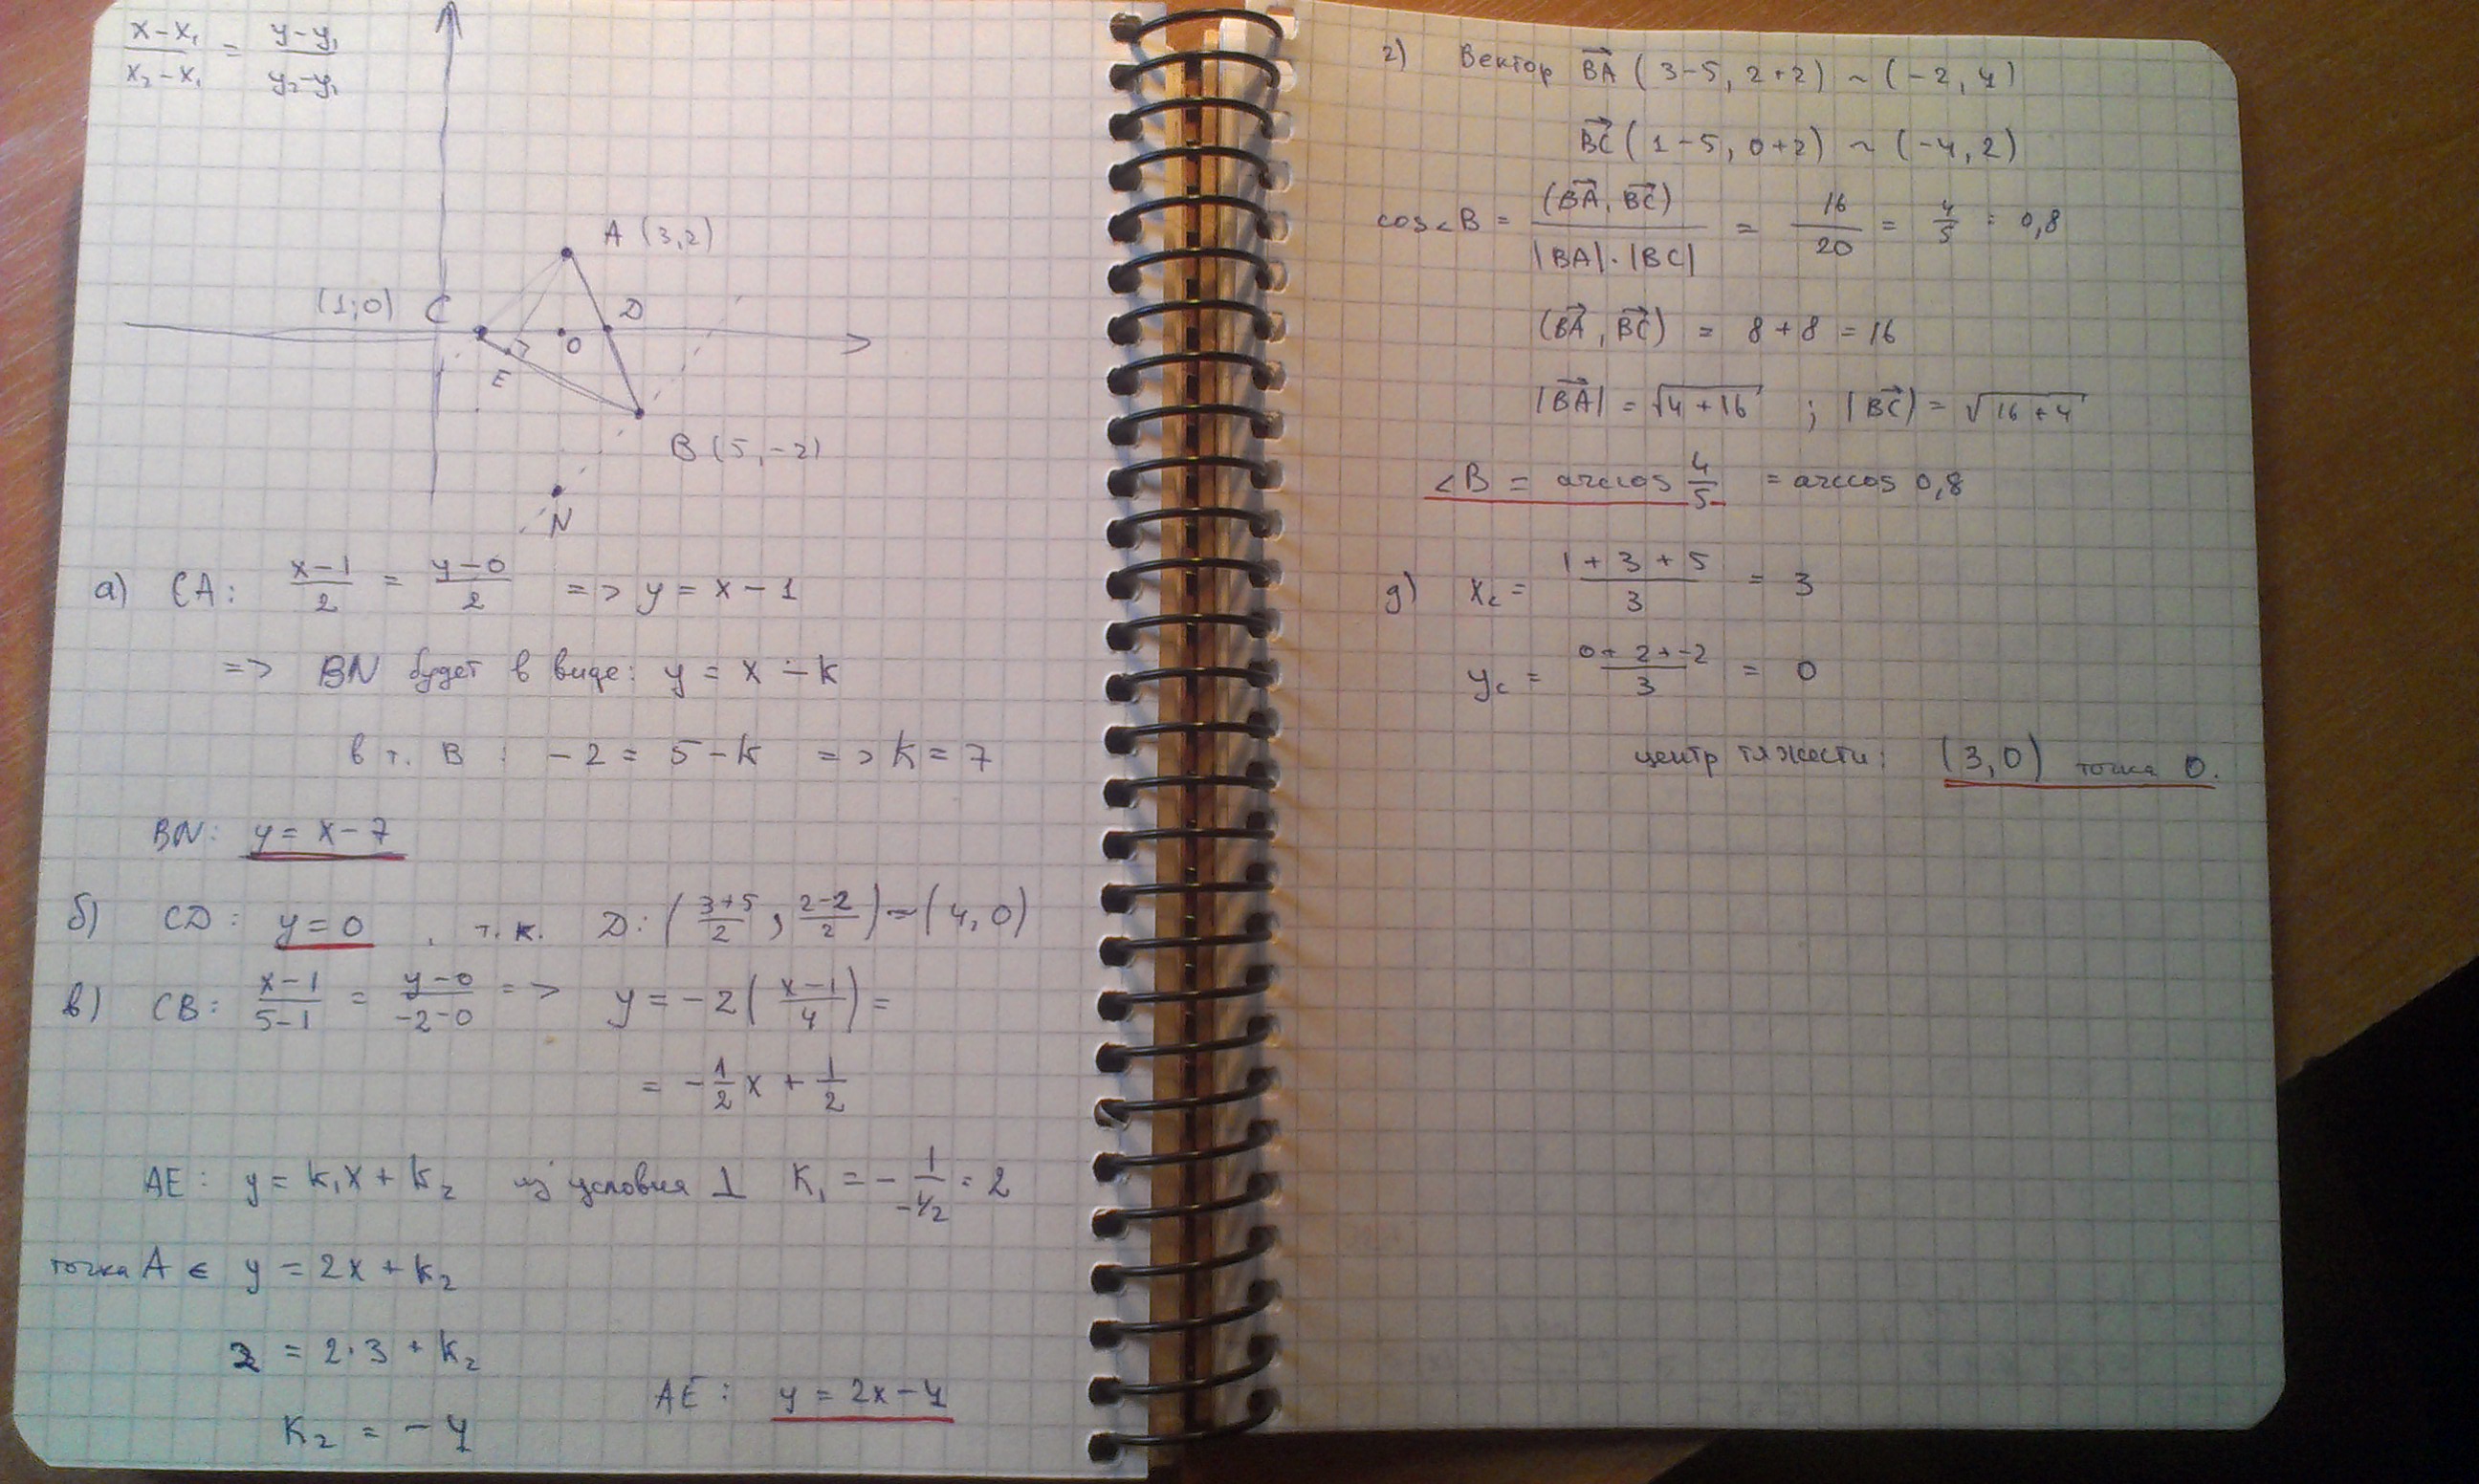 (x-x₁)/(x₂-x₁) = (y-y₁)/(y₂-y₁)
A (3,2)
(1;0) C
D
O
E
B (5,-2)
N
а) CA: (x-1)/2 = (y-0)/2 => y = x - 1
=> BN будет в виде: y = x - k
в т. B : -2 = 5-k => k = 7
BN: y = x-7
б) CD: y=0 , т.к. D: ((3+5)/2, (2-2)/2) ~ (4,0)
в) CB: (x-1)/(5-1) = (y-0)/(-2-0) => y = -2((x-1)/4) =
= -1/2 x + 1/2
AE: y = k₁x + k₂ из условия ⊥ K₁ = - 1/(-1/2) = 2
точка A ∈ y = 2x + k₂
2 = 2·3 + k₂
K₂ = -4
AE: y = 2x-4
г) Вектор BA (3-5, 2+2) ~ (-2, 4)
BC (1-5, 0+2) ~ (-4, 2)
cos∠B = (BA, BC)/(|BA|·|BC|) = 16/20 = 4/5 = 0,8
(BA, BC) = 8 + 8 = 16
|BA| = √(4+16) ; |BC| = √(16+4)
∠B = arccos 4/5 = arccos 0,8
д) x_c = (1+3+5)/3 = 3
y_c = (0+2+-2)/3 = 0
центр тяжести: (3,0) точка O.